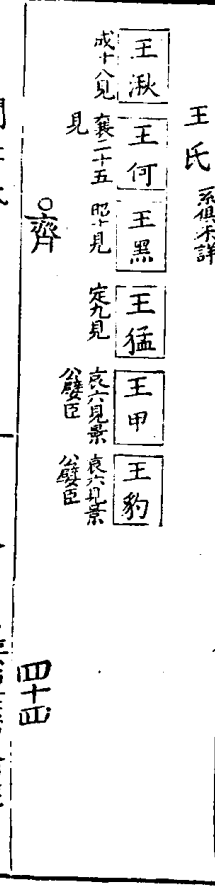 王氏 系俱未詳
王湫
成十八見
王何
襄二十五見
王黑
昭十見
王猛
定九見
王甲
哀六見景公嬖臣
王豹
哀六見景公嬖臣
○齊
四十四